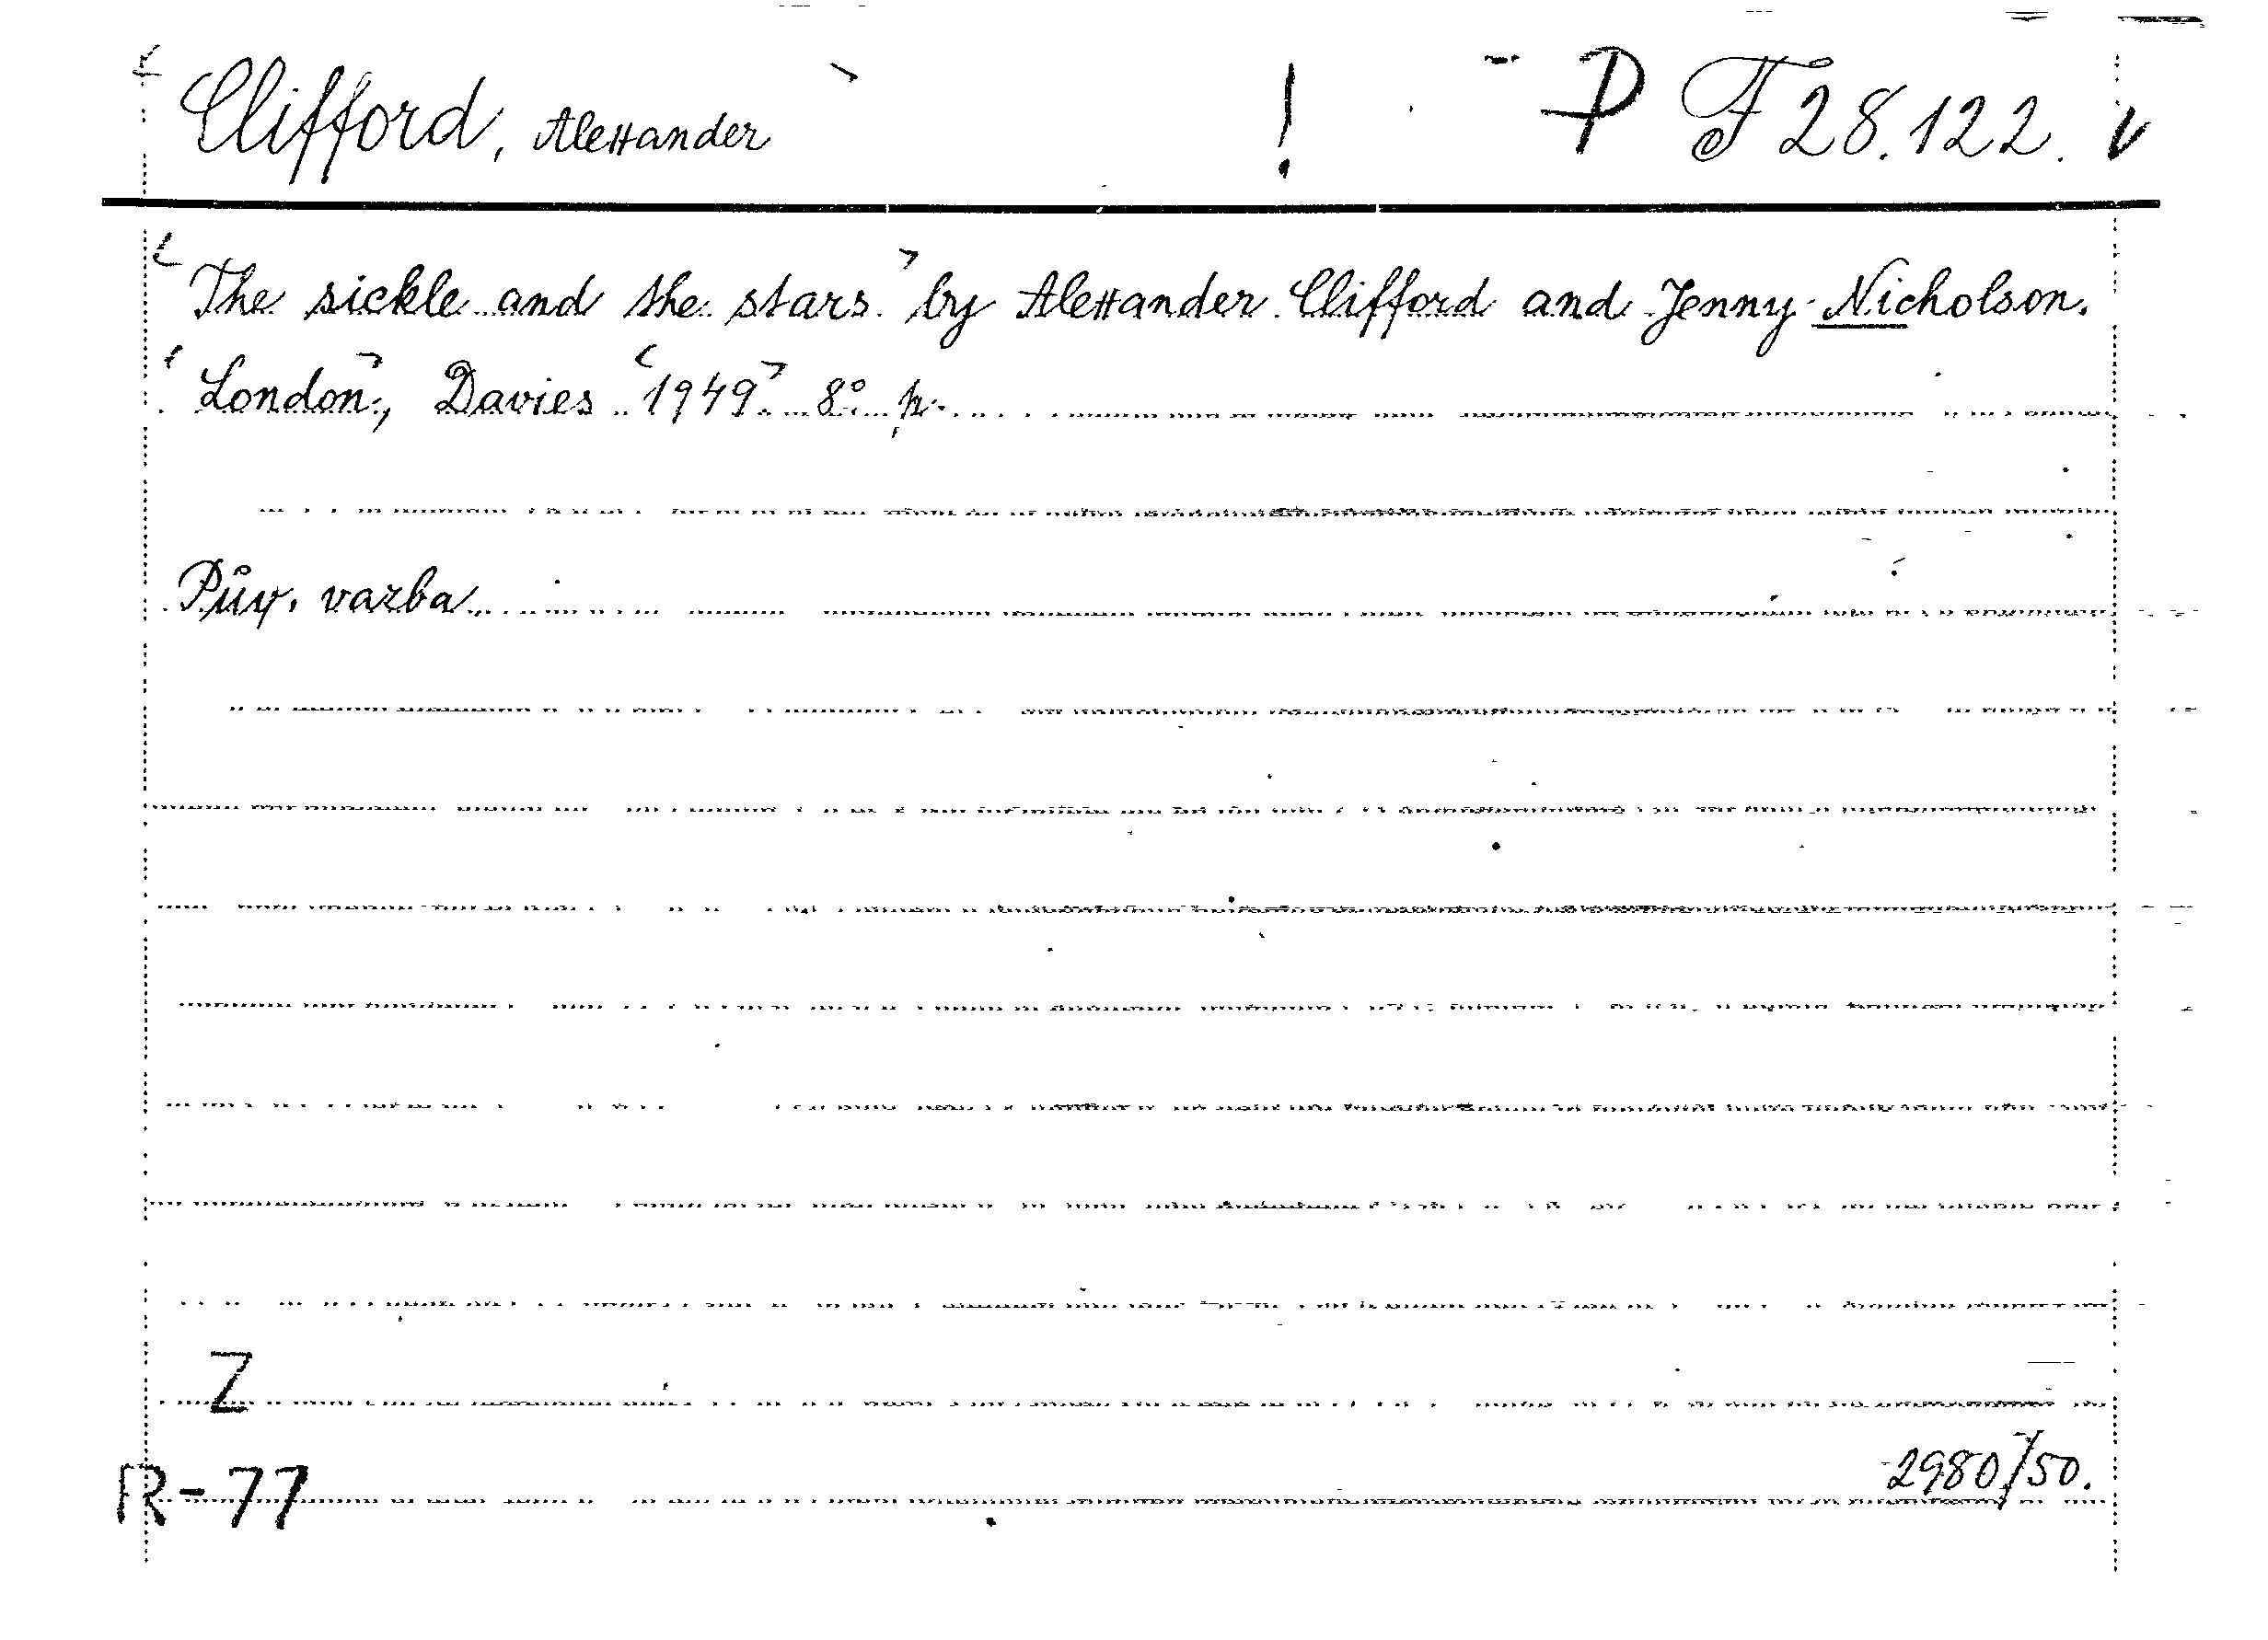 Clifford, Alexander ! P F 28.122. v
The sickle and the stars by Alexander Clifford and Jenny Nicholson.
London, Davies 1949. 8° p.
Pův. vazba.
Z
R-77 2980/50.